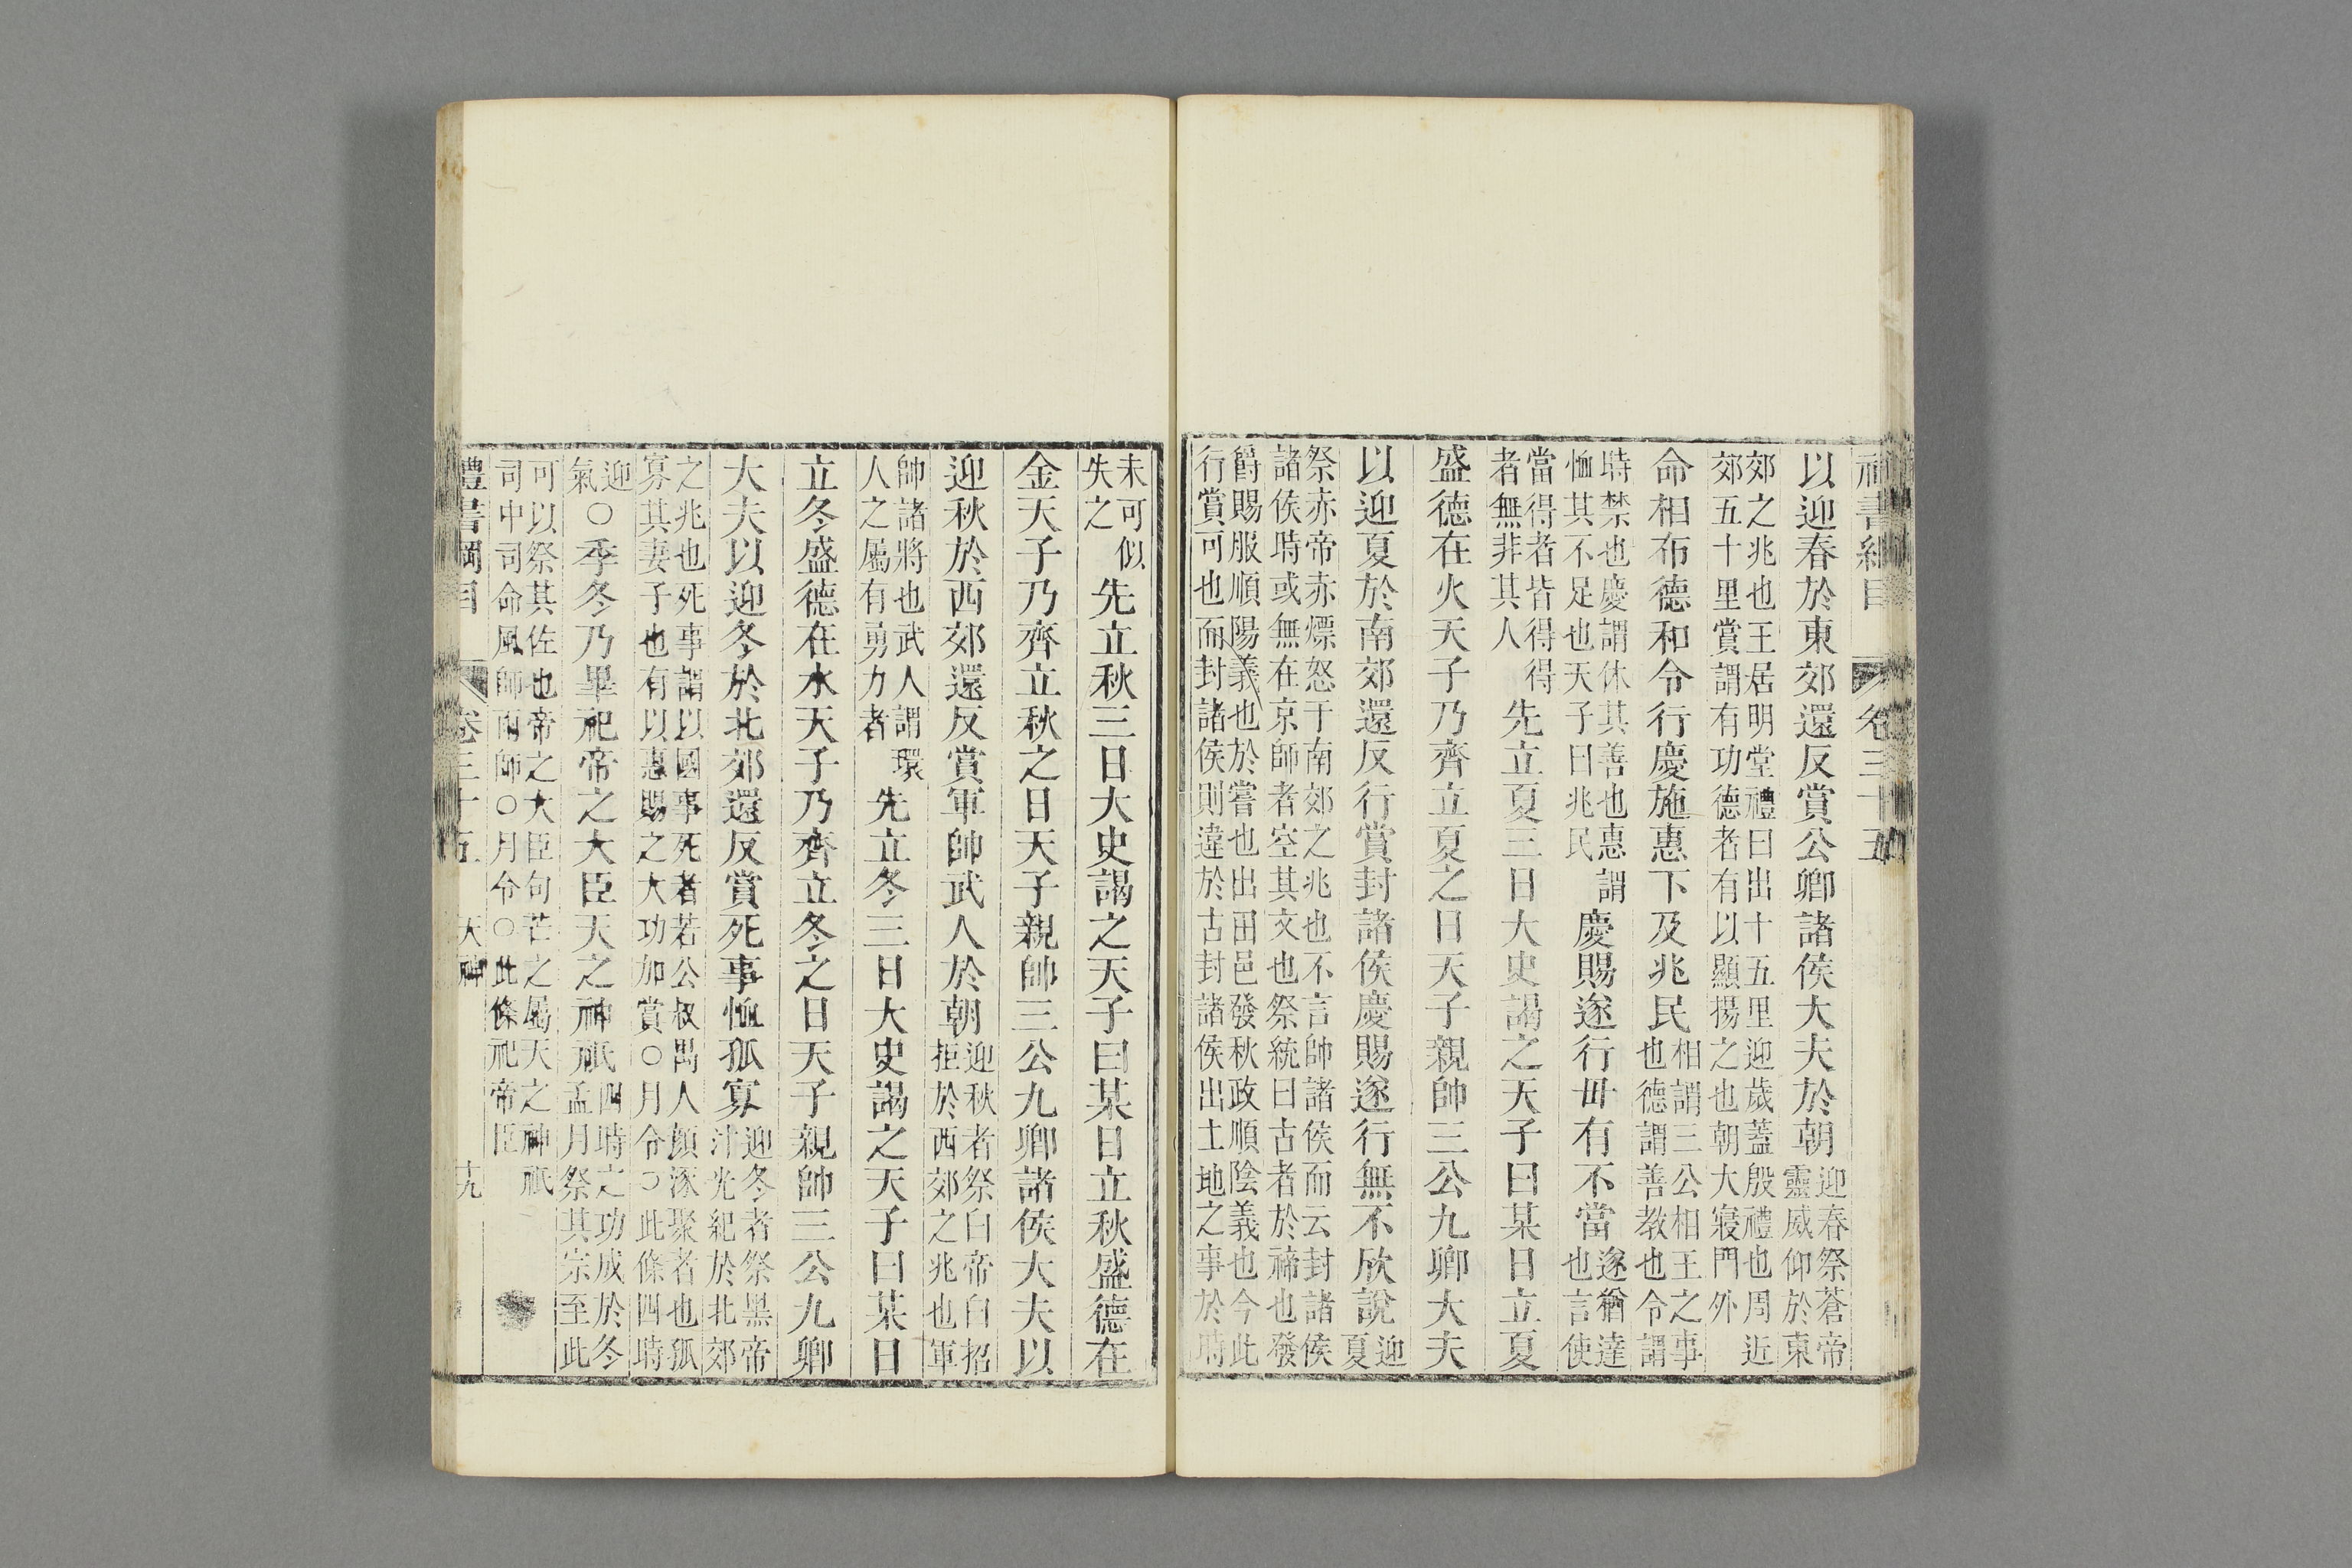 禮書綱目 卷三十五
以迎春於東郊還反賞公卿諸侯大夫於朝迎春祭蒼帝靈威仰於東
郊之兆也王居明堂禮曰出十五里迎歲蓋殷禮也周近郊五十里賞謂有功德者有以顯揚之也朝大寢門外
命相布德和令行慶施惠下及兆民相謂三公相王之事也德謂善教也令謂
時禁也慶謂休其善也惠謂恤其不足也天子曰兆民慶賜遂行毋有不當遂猶達也言使
當得者皆得得者無非其人先立夏三日大史謁之天子曰某日立夏
盛德在火天子乃齊立夏之日天子親帥三公九卿大夫
以迎夏於南郊還反行賞封諸侯慶賜遂行無不欣說迎夏
祭赤帝赤熛怒于南郊之兆也不言帥諸侯而云封諸侯諸侯時或無在京師者空其文也祭統曰古者於禘也發
爵賜服順陽義也於嘗也出田邑發秋政順陰義也今此行賞可也而封諸侯則違於古封諸侯出土地之事於時
未可似失之先立秋三日大史謁之天子曰某日立秋盛德在
金天子乃齊立秋之日天子親帥三公九卿諸侯大夫以
迎秋於西郊還反賞軍帥武人於朝迎秋者祭白帝白招拒於西郊之兆也軍
帥諸將也武人謂環人之屬有勇力者先立冬三日大史謁之天子曰某日
立冬盛德在水天子乃齊立冬之日天子親帥三公九卿
大夫以迎冬於北郊還反賞死事恤孤寡迎冬者祭黑帝汁光紀於北郊
之兆也死事謂以國事死者若公叔禺人顏涿聚者也孤寡其妻子也有以惠賜之大功加賞○月令○此條四時
迎氣○季冬乃畢祀帝之大臣天之神祇四時之功成於冬孟月祭其宗至此
可以祭其佐也帝之大臣句芒之屬天之神祇司中司命風師雨師○月令○此條祀帝臣
禮書綱目 卷三十五 天神 十九